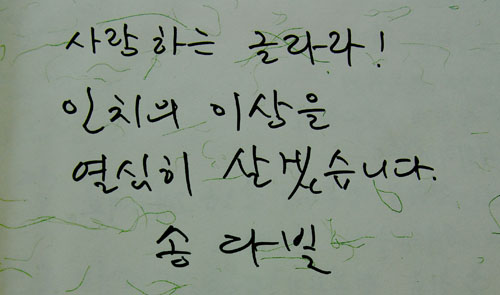 사랑하는 글라라!
인치의 이상을
열심히 살겠습니다.
송 다빌